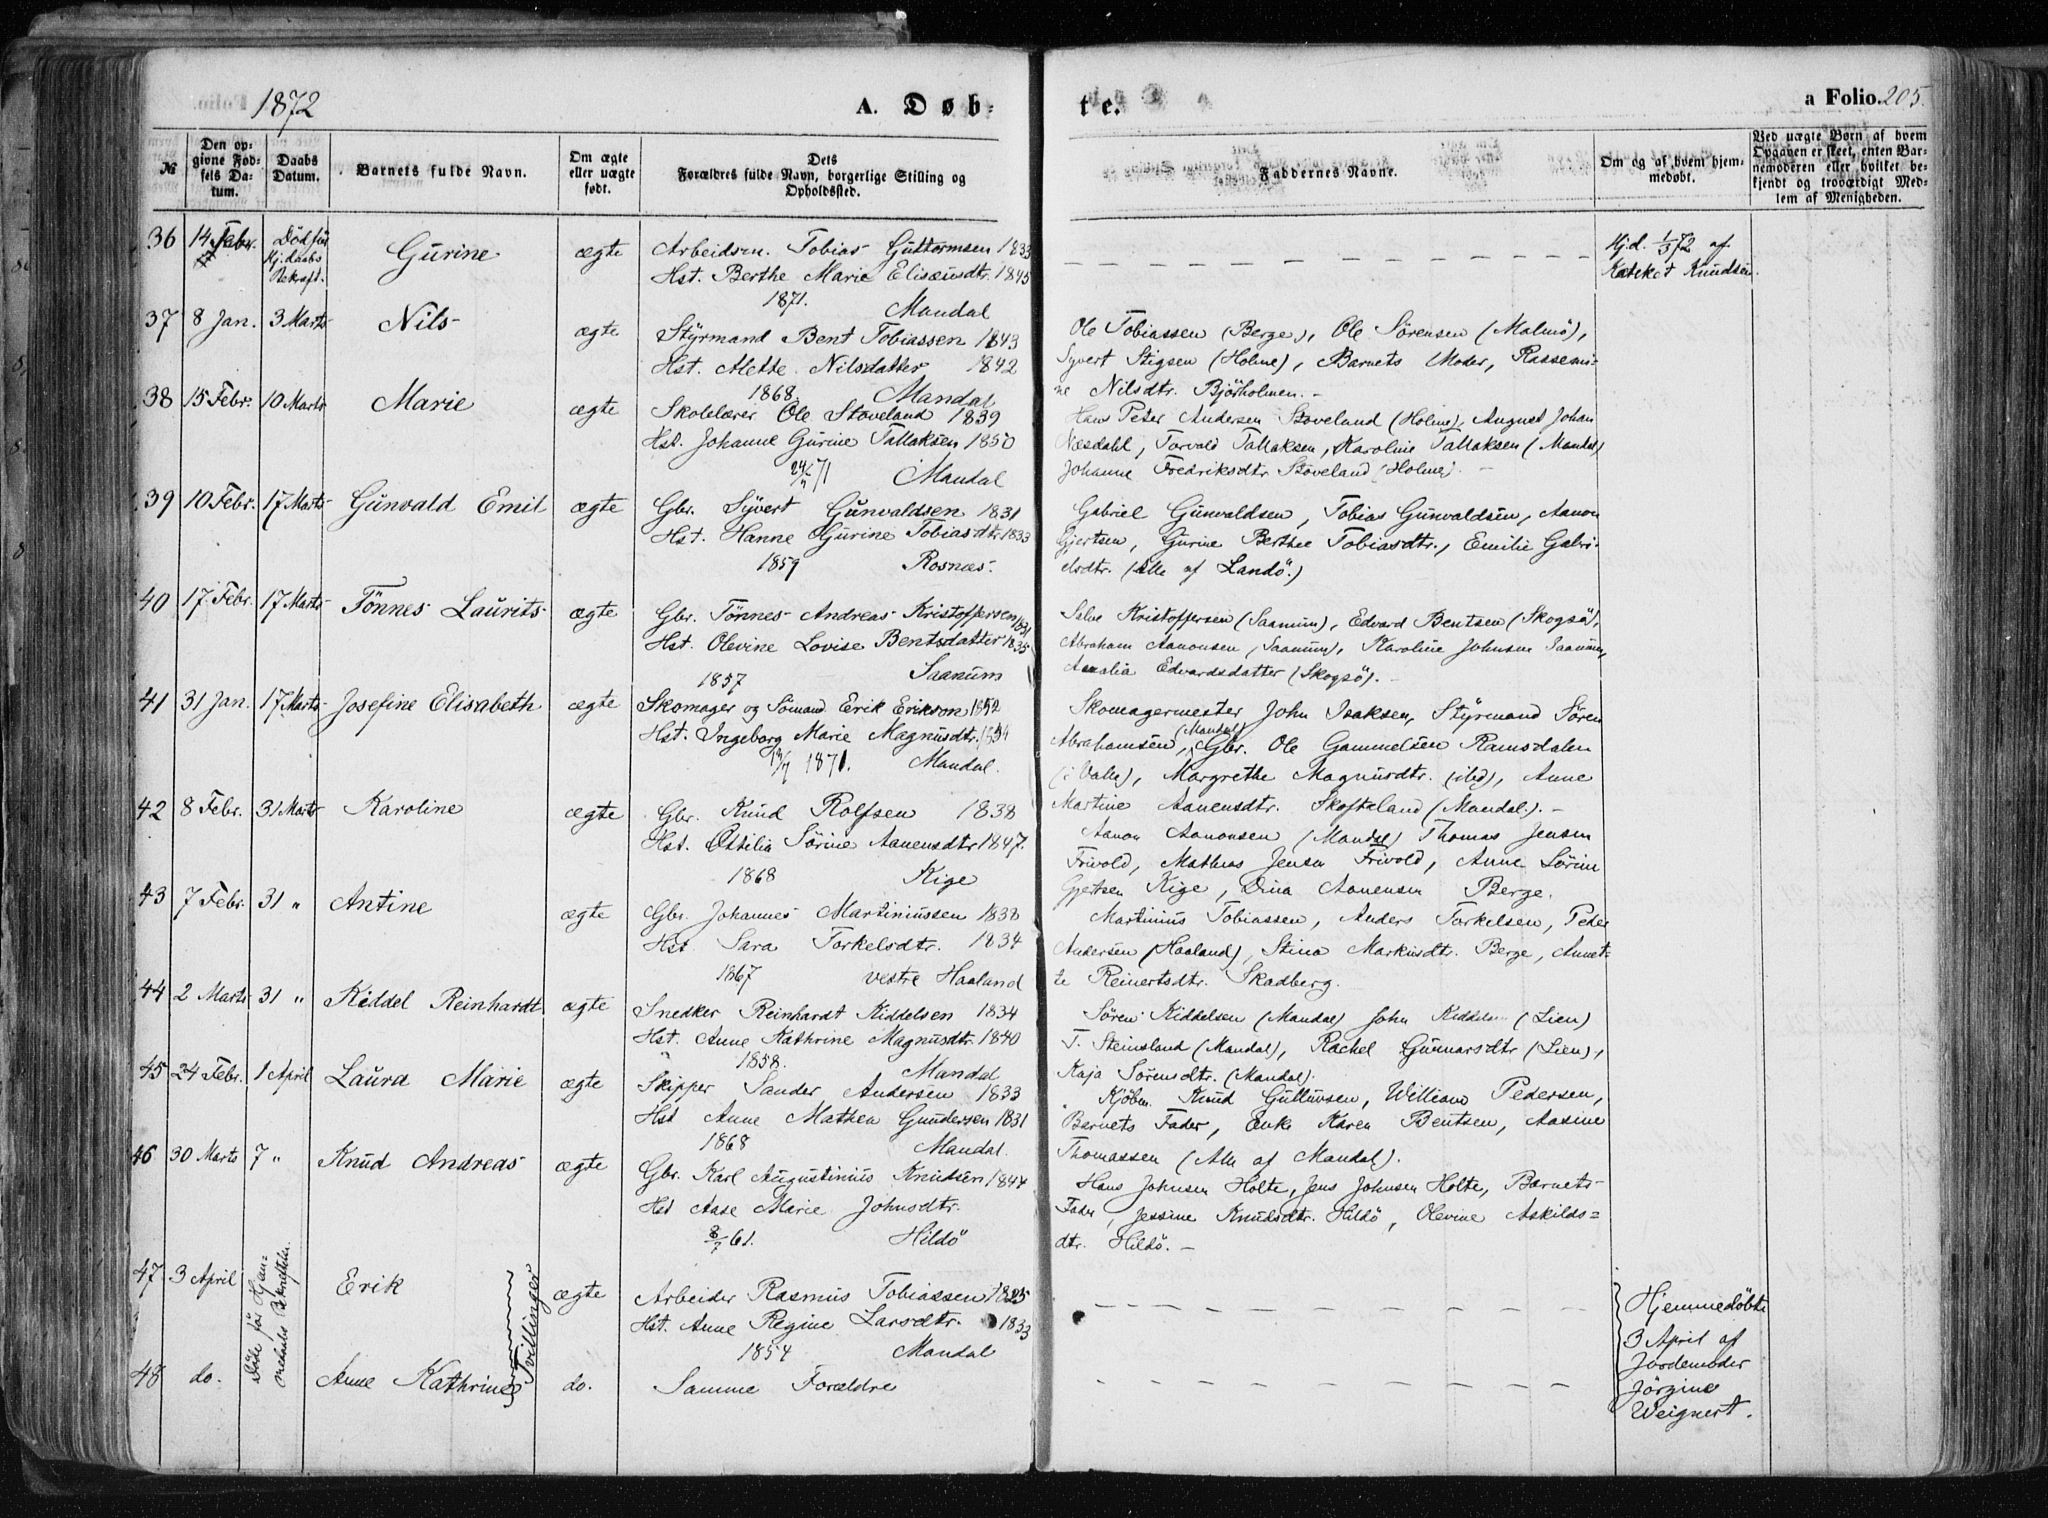 1872
A. Døb-
te.
a Folio. 205.
№
Den op-
givne Fød-
sels Da-
tum.
Daabs
Datum.
Barnets fulde Navn.
Om ægte
eller uægte
født.
Dets
Forældres fulde Navn, borgerlige Stilling og
Opholdssted.
Faddernes Navne.
Om og af hvem hjem-
medøbt.
Ved uægte Børn af hvem
Opgaven er skeet, enten Bar-
nemoderen eller hvilket be-
kjendt og troværdigt Med-
lem af Menigheden.
36 14 Febr. Död för Hj.daabs Bekræft. Gurine ægte Arbeidsm. Tobias Guttormsen 1833
Hst. Berthe Marie Elisæusdtr. 1845
1871. Mandal
Hj.d. 1/3 72 af
Kateket Knudsen.
37 8 Jan. 3 Marts Nils ægte Styrmand Bent Tobiassen 1843
Hst. Mette Nilsdatter 1842
1868. Mandal
Ole Tobiassen (Berge), Ole Sörensen (Malmö),
Syvert Stigsen (Holme), Barnets Moder, Rassemi-
ne Nilsdtr. Bjørholmen. –
38 15 Febr. 10 Marts Marie ægte Skolelærer Ole Stoveland 1839
Hst. Johanne Gurine Tallaksen 1850
71 Mandal
Hans Peter Andersen Stoveland (Holme), August Johan
Næsdahl, Torvald Tallaksen, Karoline Tallaksen (Mandal)
Johanne Fredriksdtr. Stoveland (Holme). –
39 10 Febr. 17 Marts Gunvald Emil ægte Gbr. Syvert Gunvaldsen 1831
Hst. Hanne Gurine Tobiasdtr. 1833
1859 Rosnæs.
Gabriel Gunvaldsen, Tobias Gunvaldsen, Aanon
Gjertsen, Gurine Berthee Tobiasdtr., Emilie Gabri-
elsdtr. (Alle af Landö.)
40 17 Febr. 17 Marts Tönnes Laurits ægte Gbr. Tönnes Andreas Kristoffersen 1831
Hst. Olevine Lovise Bentsdatter 1835
1857 Saanum
Salve Kristoffersen (Saanum), Edvard Bentsen (Skogsö),
Abraham Aanonsen (Saanum), Karoline Johnsen Saanum,
Amalia Edvardsdatter (Skogsö). –
41 31 Jan. 17 Marts Josefine Elisabeth ægte Skomager og Sömand Erik Erikson 1852
Hst. Ingeborg Marie Magnusdtr. 1854
1871. Mandal.
Skomagermester John Isaksen, Styrmand Sören
Abrahamsen, (Mandal) Gbr. Ole Gammelsen Ramsdalen
(i Valle), Margrethe Magnusdtr. (ibd), Anne
Martine Aanensdtr. Skofteland (Mandal). –
42 8 Febr. 31 Marts Karoline ægte Gbr. Knud Rolfsen 1838
Hst. Ottilia Sörine Aanensdtr 1847.
1868 Kige
Aanon Aanonsen (Mandal) Thomas Jensen
Frivold, Mathias Jensen Frivold, Anne Sörine
Gjertsen Kige, Dina Aanensen Berge.
43 7 Febr. 31 " Antine ægte Gbr. Johannes Martiniussen 1838
Hst. Sara Torkelsdtr. 1834
1867 vestre Haaland
Martinius Tobiassen, Anders Torkelsen, Peder
Andersen (Haaland), Stina Markusdtr. Berge, Annet-
te Reinertsdtr. Skadberg.
44 2 Marts 31 " Kiddel Reinhardt ægte Snedker Reinhardt Kiddelsen 1834
Hst. Anne Kathrine Magnusdtr. 1840
1858. Mandal
Sören Kiddelsen (Mandal) John Kiddelsen (Lien)
T. Steinsland (Mandal), Rachel Gunnarsdtr (Lien),
Kaja Sörensdtr. (Mandal).
45 24 Febr. 1 April Laura Marie ægte Skipper Sander Andersen 1833
Hst Anne Mathea Gundersen 1831
1868 Mandal.
Kjöbm. Knud Gulluvsen, William Pedersen,
Barnets Fader, Enke Karen Bentsen, Aasine
Thomassen (Alle af Mandal).
46 30 Marts 7 " Knud Andreas ægte Gbr. Karl Augustinius Knudsen 1844
Hst Aase Marie Johnsdtr.
8/7 61. Hildö
Hans Johnsen Holte, Jens Johnsen Holte, Barnets
Fader, Jessine Knudsdtr. Hildö, Olevine Askilds=
dtr. Hildö. –
47 3 April Erik ægte Arbeider Rasmus Tobiassen 1825
Hst. Anne Regine Larsdtr. 1833
1854 Mandal
Döde för Hjem-
medaabs Bekræftelse.
Tvillinger
Hjemmedöbte
3 April af
Jordemoder
Jörgine
Weignert.
48 do. Anne Kathrine do. Samme Forældre